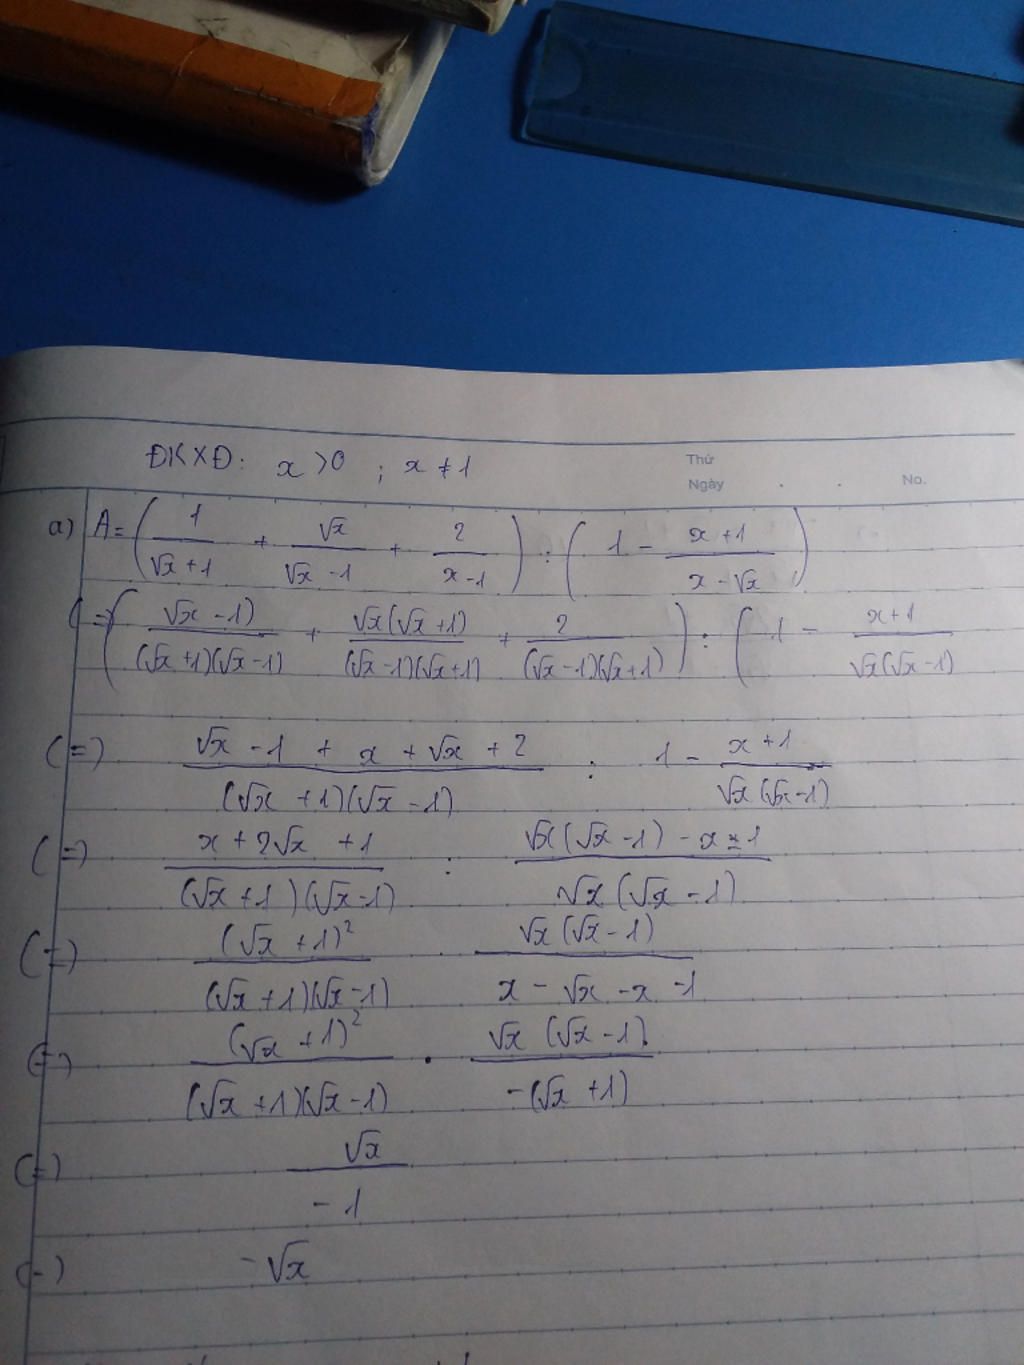 ĐKXĐ: x > 0 ; x ≠ 1
Thứ
Ngày . . No.
a) A = ( 1/(√x + 1) + √x/(√x - 1) + 2/(x - 1) ) : ( 1 - (x + 1)/(x - √x) )
(=) ( (√x - 1))/((√x + 1)(√x - 1)) + √x(√x + 1)/((√x - 1)(√x + 1)) + 2/((√x - 1)(√x + 1)) ) : ( 1 - (x + 1)/(√x(√x - 1))
(=) (√x - 1 + x + √x + 2)/((√x + 1)(√x - 1)) : 1 - (x + 1)/(√x(√x - 1))
(=) (x + 2√x + 1)/((√x + 1)(√x - 1)) : (√x(√x - 1) - x - 1)/(√x(√x - 1))
(=) (√x + 1)²/((√x + 1)(√x - 1)) . √x(√x - 1)/(x - √x - x - 1)
(=) (√x + 1)²/((√x + 1)(√x - 1)) . √x(√x - 1)/(-(√x + 1))
(=) √x/(- 1)
(=) - √x